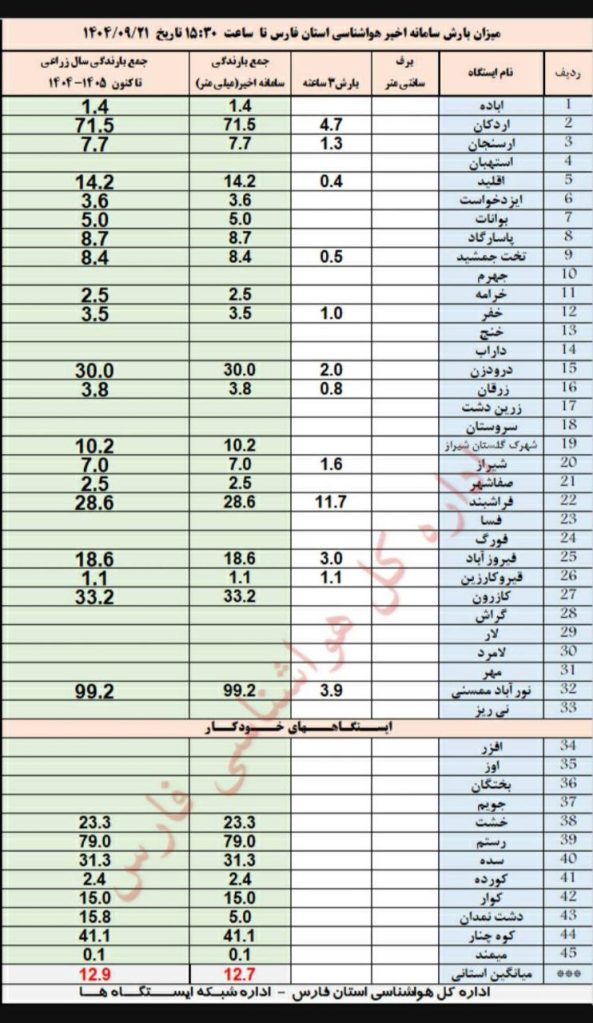 میزان بارش سامانه اخیر هواشناسی استان فارس تا ساعت ۱۵:۳۰ تاریخ ۱۴۰۴/۰۹/۲۱
ردیف نام ایستگاه برف سانتی متر بارش ۳ ساعته جمع بارندگی سامانه اخیر(میلی متر) جمع بارندگی سال زراعی تا کنون ۱۴۰۵-۱۴۰۴
1 اباده 1.4 1.4
2 اردکان 4.7 71.5 71.5
3 ارسنجان 1.3 7.7 7.7
4 استهبان
5 اقلید 0.4 14.2 14.2
6 ایزدخواست 3.6 3.6
7 بوانات 5.0 5.0
8 پاسارگاد 8.7 8.7
9 تخت جمشید 0.5 8.4 8.4
10 جهرم
11 خرامه 2.5 2.5
12 خفر 1.0 3.5 3.5
13 خنج
14 داراب
15 درودزن 2.0 30.0 30.0
16 زرقان 0.8 3.8 3.8
17 زرین دشت
18 سروستان
19 شهرک گلستان شیراز 10.2 10.2
20 شیراز 1.6 7.0 7.0
21 صفاشهر 2.5 2.5
22 فراشبند 11.7 28.6 28.6
23 فسا
24 فورگ
25 فیروزآباد 3.0 18.6 18.6
26 قیروکارزین 1.1 1.1 1.1
27 کازرون 33.2 33.2
28 گراش
29 لار
30 لامرد
31 مهر
32 نورآباد ممسنی 3.9 99.2 99.2
33 نی ریز
ایستگاههای خودکار
34 افزر
35 اوز
36 بختگان
37 جویم
38 خشت 23.3 23.3
39 رستم 79.0 79.0
40 سده 31.3 31.3
41 کورده 2.4 2.4
42 کوار 15.0 15.0
43 دشت نمدان 5.0 15.8
44 کوه چنار 41.1 41.1
45 میمند 0.1 0.1
*** میانگین استانی 12.7 12.9
اداره کل هواشناسی استان فارس - اداره شبکه ایستگاه ها
اداره کل هواشناسی فارس